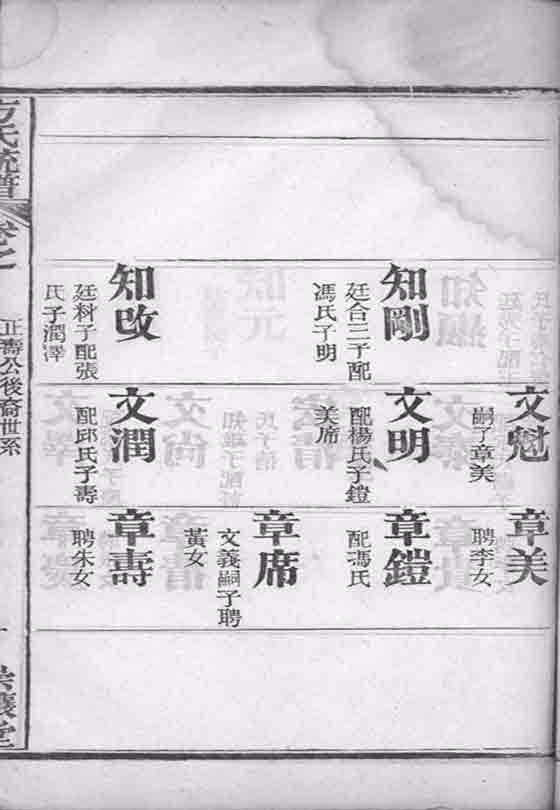 知剛
廷合三子配
馮氏子明
知改
廷科子配張
氏子潤澤
文魁
嗣子章美
文明
配楊氏子鎧
美席
文潤
配邱氏子壽
章美
聘李女
章鎧
配馮氏
章席
文義嗣子聘
黃女
章壽
聘朱女
方氏統譜
卷之一
正壽公後裔世系